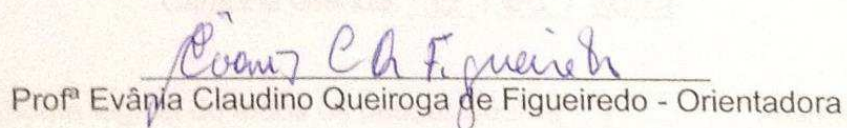 Evania C Q Figueiredo
Profª Evânia Claudino Queiroga de Figueiredo - Orientadora